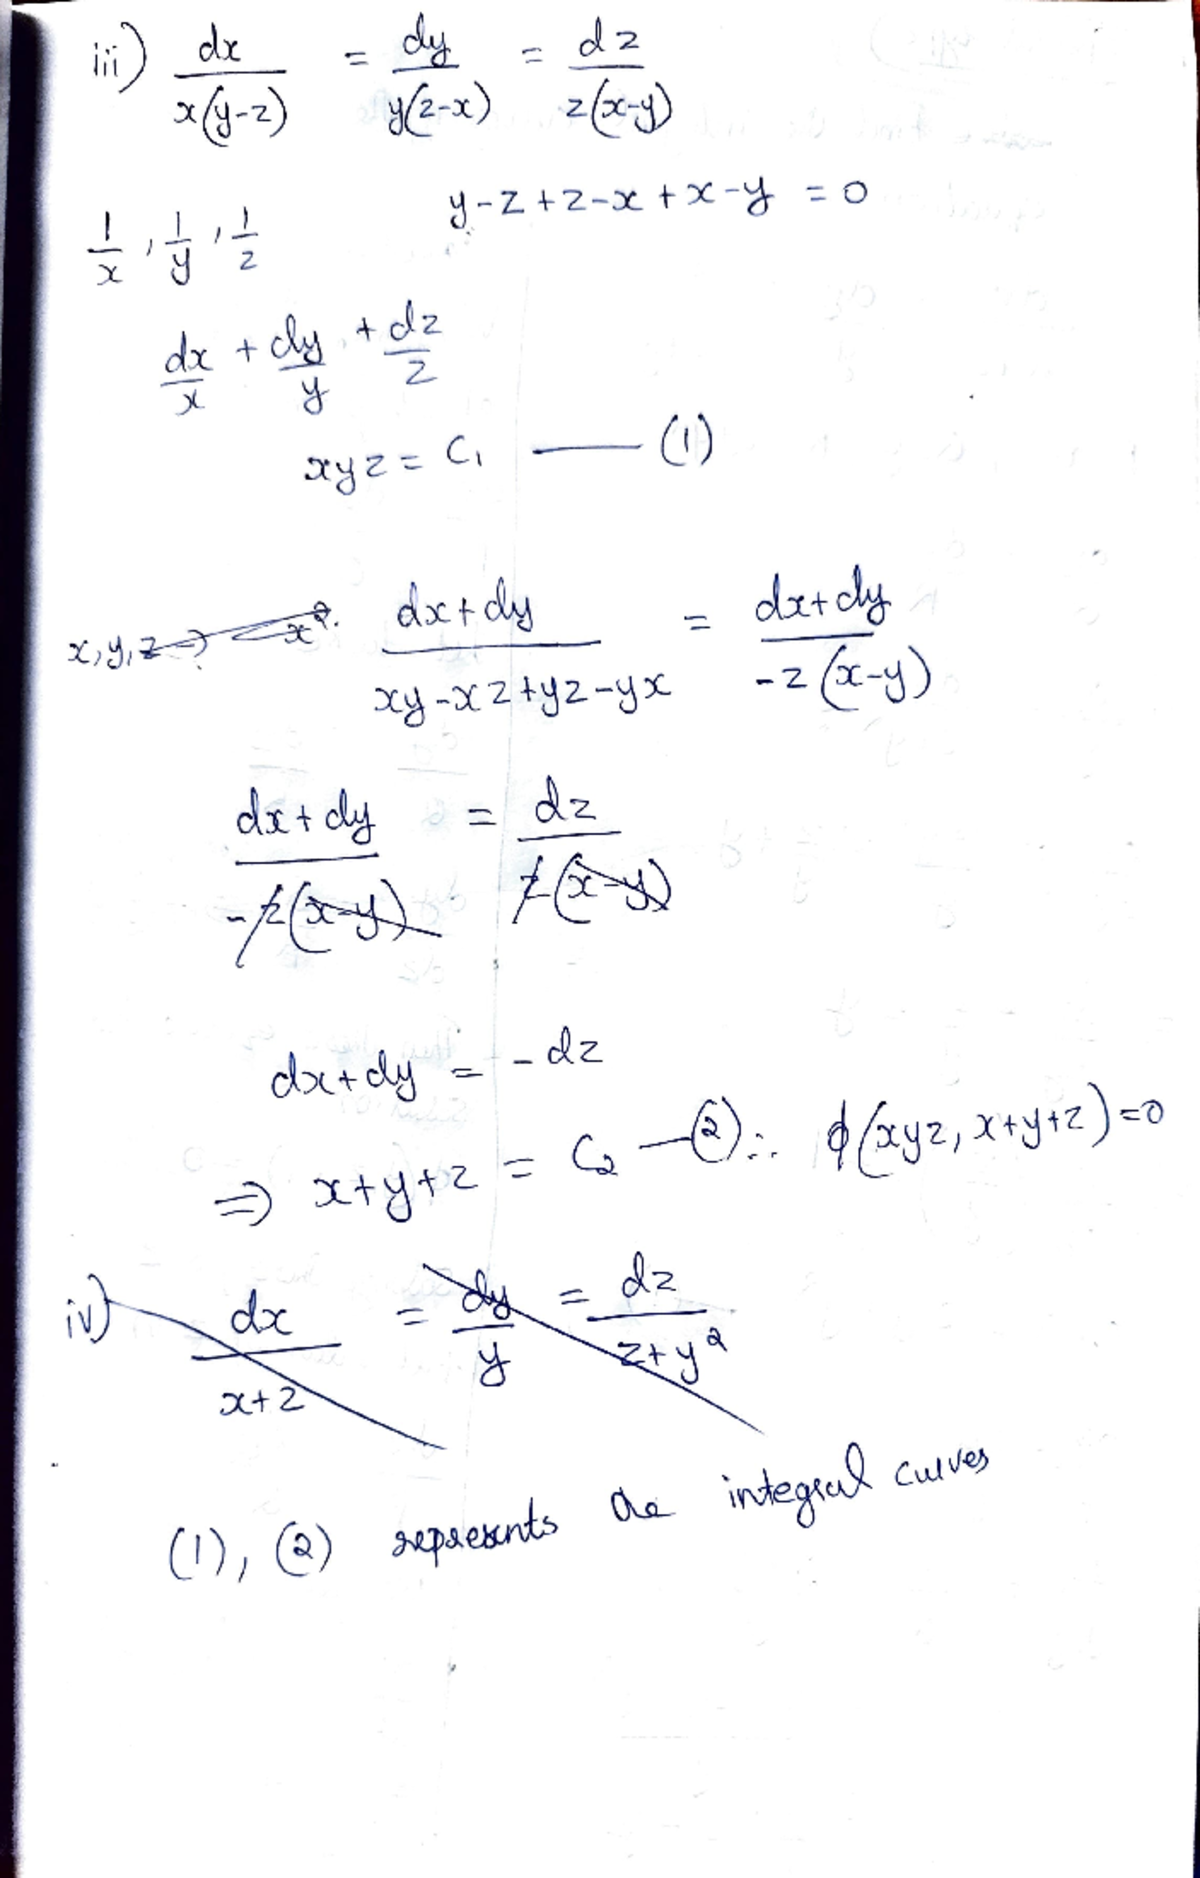 iii) dx/x(y-z) = dy/y(z-x) = dz/z(x-y)
1/x, 1/y, 1/z    y-z+z-x+x-y = 0
dx/x + dy/y + dz/z
xyz = C₁ —— (1)
x, y, z ⇒    (dx+dy)/(xy-xz+yz-yx) = (dx+dy)/(-z(x-y))
(dx+dy)/(-z(x-y)) = dz/(z(x-y))
dx+dy = -dz
⇒ x+y+z = C₂ —(2) ∴ ϕ(xyz, x+y+z)=0
iv) dx/(x+z) = dy/y = dz/(z+y²)
(1), (2) represents the integral curves